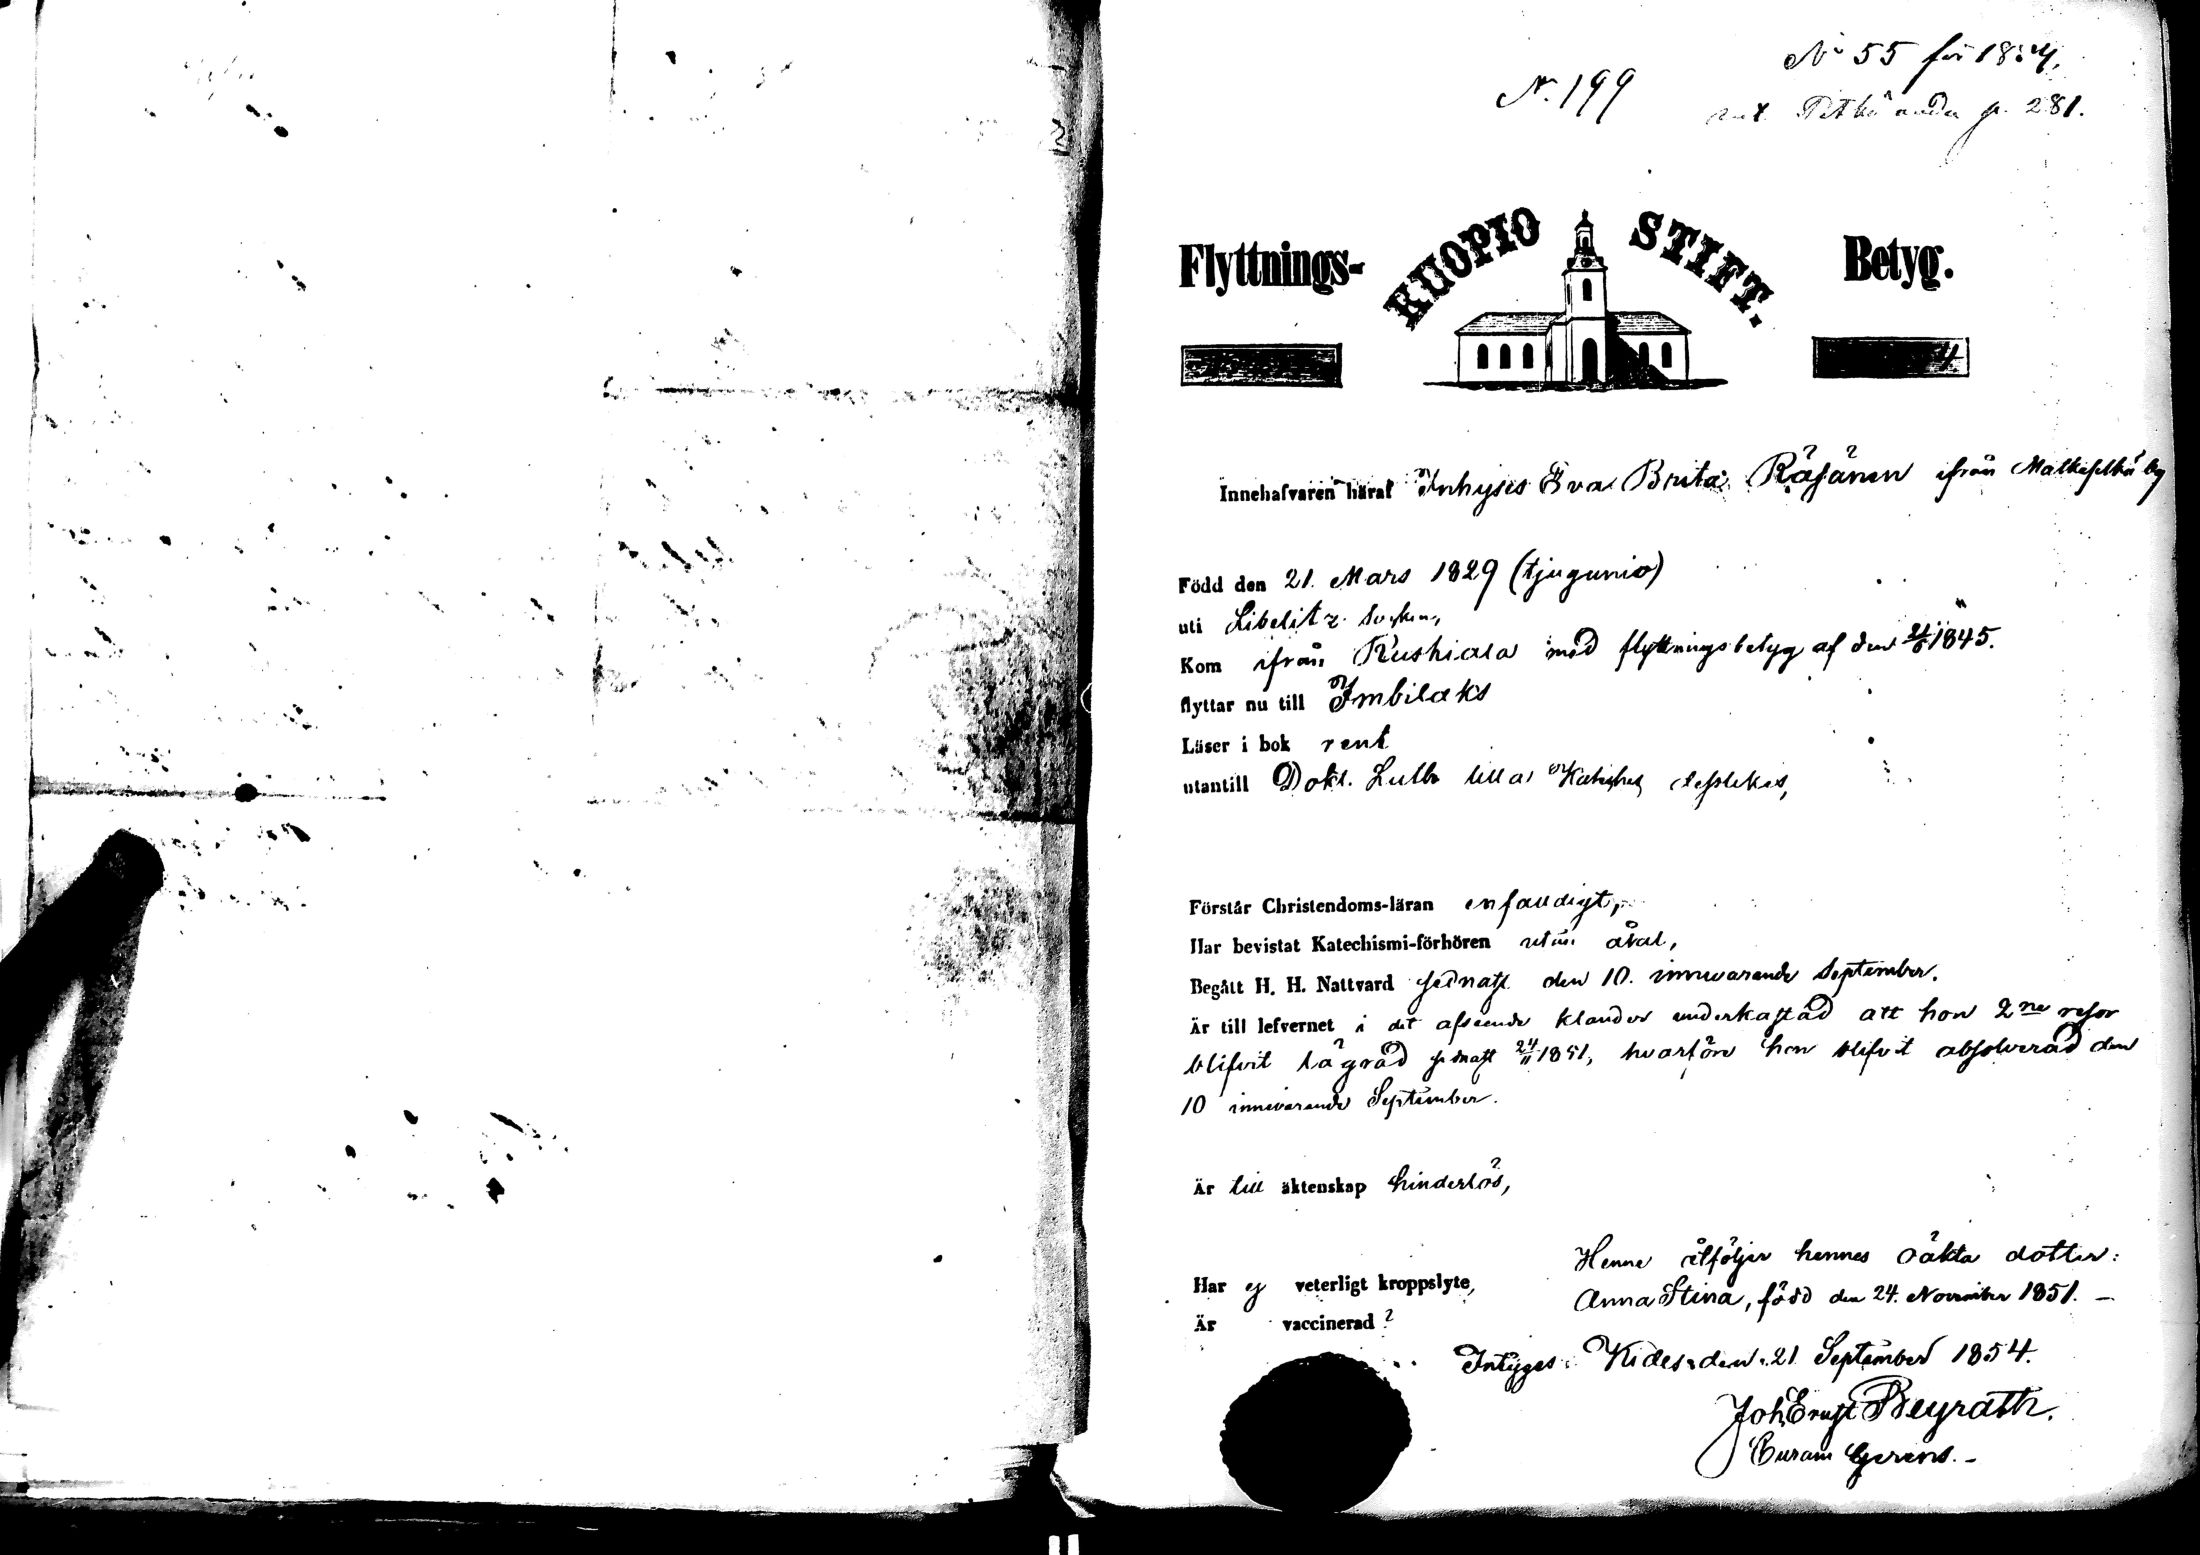 No 55 för 1854.
N. 199
p. 281.
Flyttnings-
KUOPIO STIFT.
Betyg.
Innehafvaren häraf Inhyses Eva Brita Räsänen ifrån Matkaselkä by
Född den 21. Mars 1829 (tjugunio)
uti Libelitz Socken,
Kom ifrån Ruskiala med flyttningsbetyg af den 1845.
flyttar nu till Imbilaks
Läser i bok rent
utantill Dokt. Luth. lilla Kateches
Förstår Christendoms-läran enfaldigt,
Har bevistat Katechismi-förhören
Begått H. H. Nattvard sednast den 10. innevarande September.
Är till lefvernet i det afseende klander underkastad att hon 2ne resor
blifvit lägrad sednast 24/11 1851, hvarföre hon blifvit absolverad den
10 innevarande September.
Är till äktenskap hinderlös,
Henne åtföljer hennes oäkta dotter:
Har ej veterligt kroppslyte,
Anna Stina, född den 24. November 1851. –
Är vaccinerad?
Intygas. Kides den 21 September 1854.
Joh. Ernst Beyrath.
Curam Gerens. –